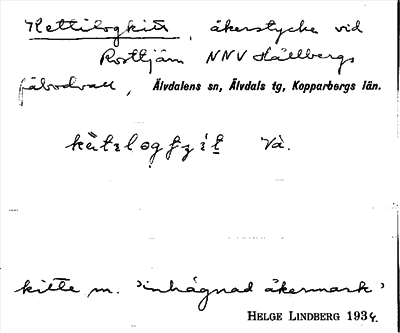 Kettilogkitt, åkerstycke vid
Rosttjärn NNV Hållbergs
fäbodvall, Älvdalens sn, Älvdals tg, Kopparbergs län.
Vå.
kitte m. 'inhägnad åkermark'
HELGE LINDBERG 1934.